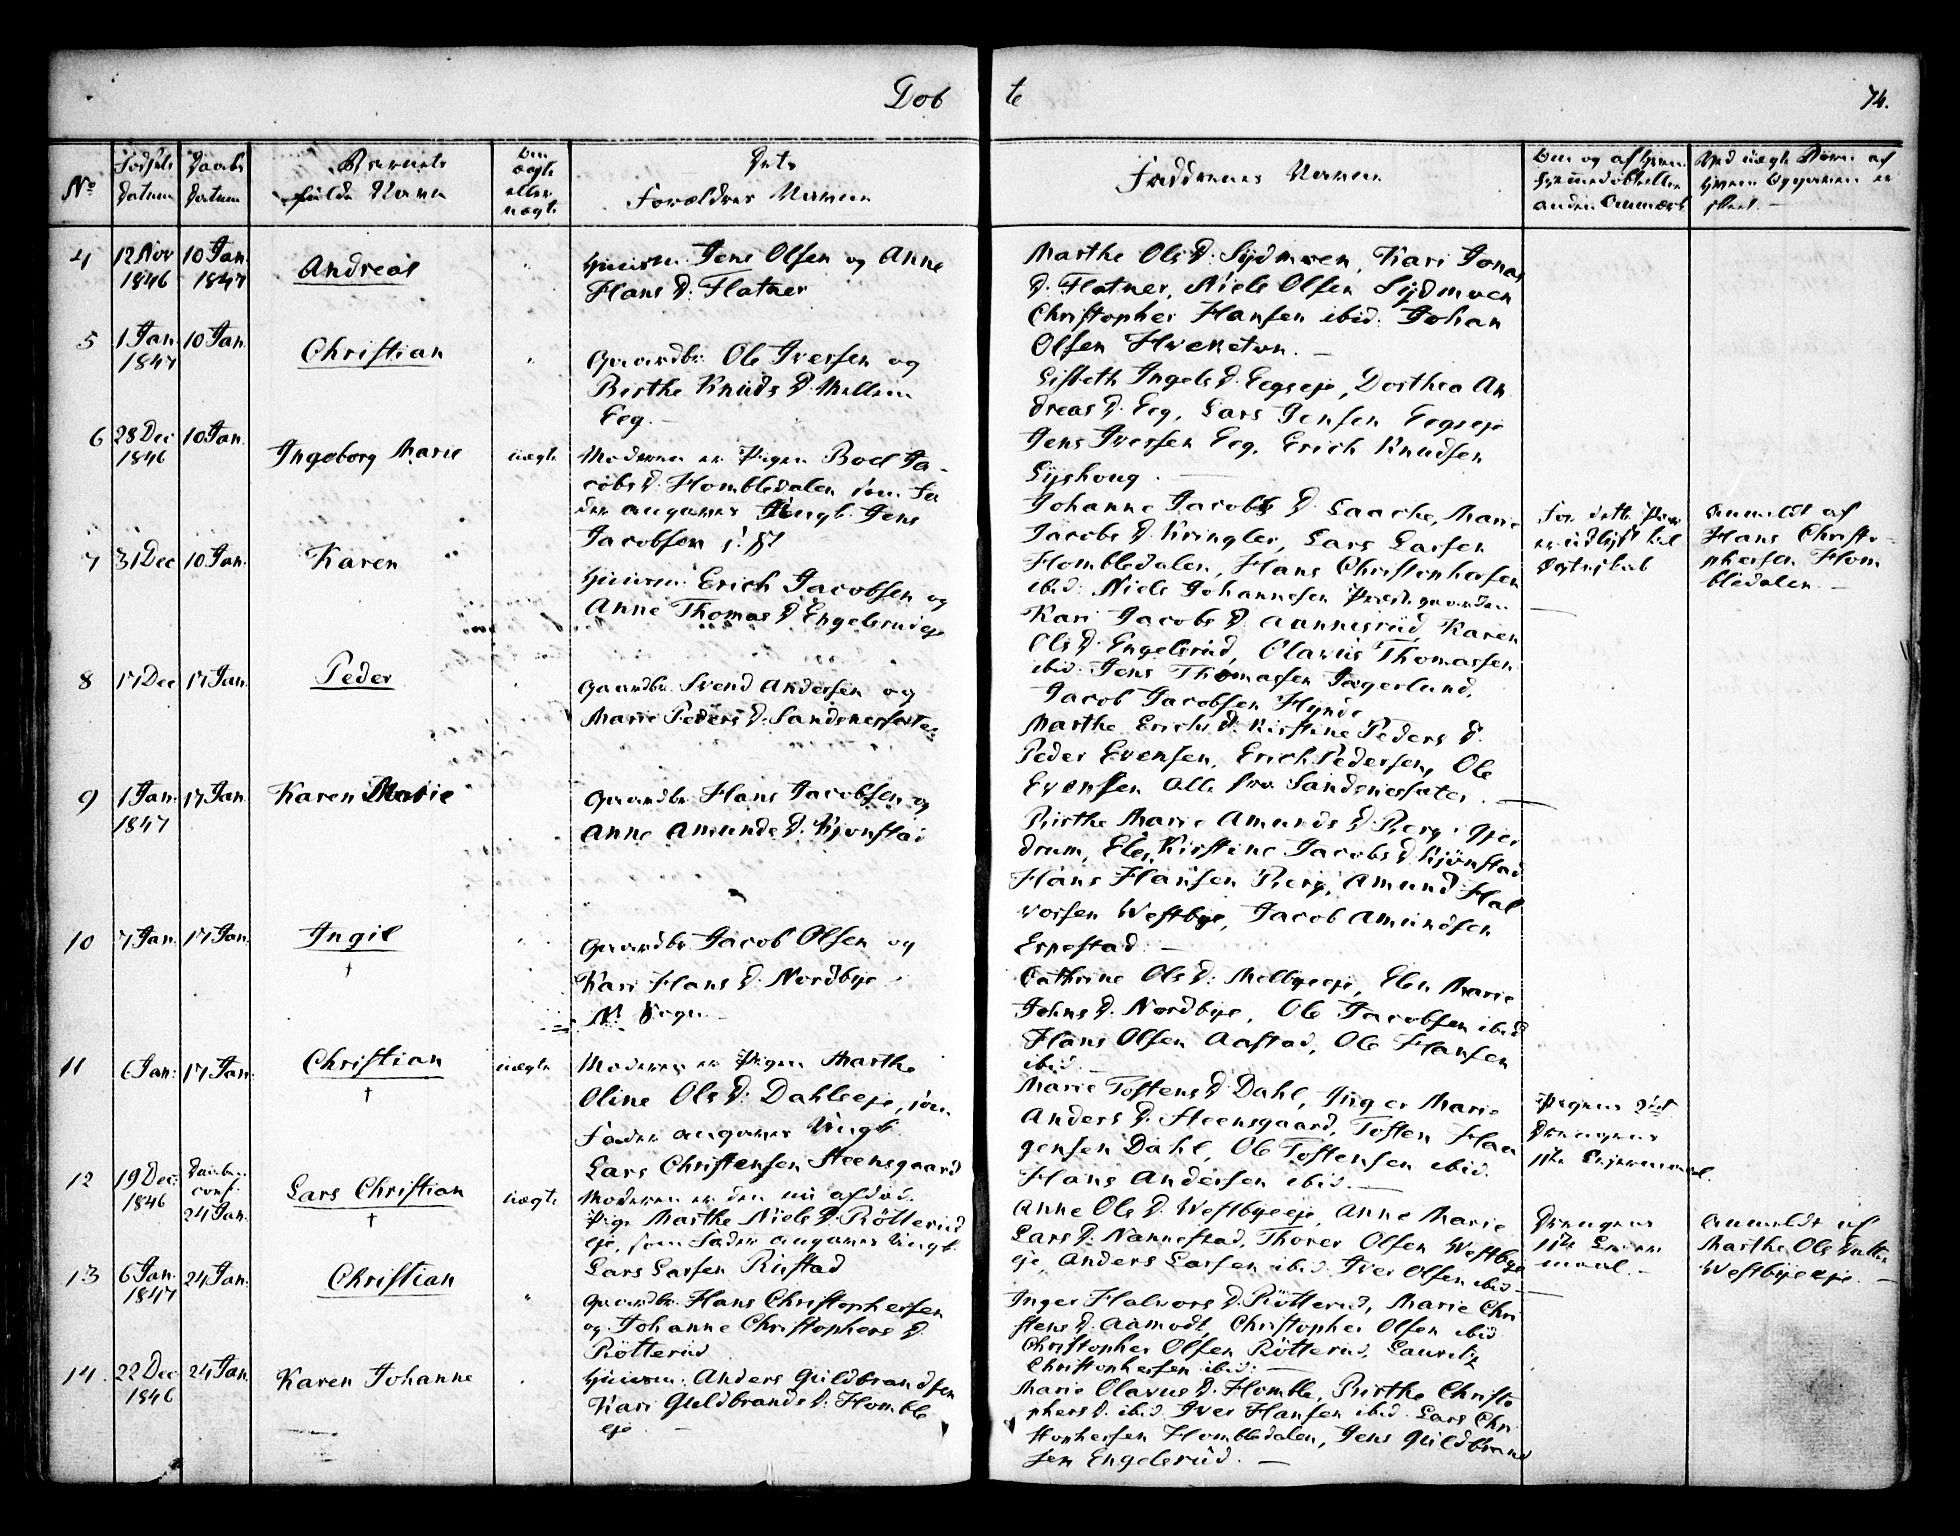 Døb te 74.
No
Fødsels Datum
Daabs Datum
Barnets fulde Navn
Om ægte eller uægte
Dets Forældres Navne
Faddernes Navne
4 12 Nov 1846 10 Jan. 1847 Andreas
Huusm. Jens Olsen og Anne
Hans D. Flatner
Marthe Ols D. Sydmoen, Kari Jonas
D. Flatner, Niels Olsen Sydmoen
Christopher Hansen ibid. Johan
Olsen
5 1 Jan. 1847 10 Jan. Christian
Gaardbr. Ole Iversen og
Berthe Knuds D. Mellem
Eeg.
Lisbeth Ingels D. Eegseje, Dorthea An
dreas D. Eeg, Lars Jensen Eegseje
Jens Iversen Eeg, Erich Knudsen
Lyshoug.
6 28 Dec 1846 10 Jan. Ingeborg Marie uægte
Moderen er Pigen Boel Ja-
cobs D. Hombledalen som Fa
der angaves Ungk. Jens
Jacobsen
Johanne Jacobs D. Saache, Marie
Jacobs D. Kringler, Lars Larsen
Hombledalen, Hans Christophersen
ibid. Niels Johannesen Præstegaarden
For dette Par
er udlyst til
Ægteskab
Anmeldt af
Hans Christo-
phersen Hom
bledalen.
7 31 Dec 10 Jan. Karen
Huusm. Erich Jacobsen og
Anne Thomas D. Engelsrudeje
Kari Jacobs D. Aannerud, Karen
Ols D. Engelsrud, Olavus Thomassen
ibid. Jens Thomassen Jægerlund,
Jacob Jacobsen Hynde
8 17 Dec 17 Jan. Peder
Gaardbr. Svend Andersen og
Marie Peders D. Sandnessæter
Marthe Erichs D. Kirstine Peders D.
Peder Evensen, Erich Pedersen, Ole
Evensen Alle fra Sandnessæter.
9 1 Jan. 1847 17 Jan. Karen Marie
Gaardbr. Hans Jacobsen og
Anne Amunds D. Kjonstad
Birthe Marie Amunds D. Berg i Gjer
drum, Elen Kirstine Jacobs D. Kjønstad
Hans Hansen Berg, Amund Hal
vorsen Westbye, Jacob Amundsen
Erpestad.
10 7 Jan. 17 Jan. Ingil †
Gaardbr. Jacob Olsen og
Kari Hans D. Nordbye
N. Sogn
Cathrine Ols D. Melbyeeje, Elen Marie
Johns D. Nordbye, Ole Jacobsen ibid
Hans Olsen Aastad, Ole Hansen
ibid.
11 6 Jan. 17 Jan. Christian † uægte
Moderen er Pigen Marthe
Oline Ols D. Dahleeje, som
Fader angaves Ungk.
Lars Christensen Steensgaard
Marie Tostens D. Dahl, Inger Marie
Anders D. Steensgaard, Tosten Haa
gensen Dahl, Ole Tostensen ibid.
Hans Andersen ibid.
Pigens 2det
Drengens
1ste Lejermaal.
12 19 Dec. 1846 Daaben conf. 24 Jan. Lars Christian † uægte
Moderen er den nu afdøde
Pige Marthe Niels D. Rötterud
eje, som Fader angaves Ungk.
Lars Larsen Rustad
Anne Ols D. Westbyeeje, Anne Marie
Lars D. Nannestad, Thorer Olsen Westbye
eje, Anders Larsen ibid. Iver Olsen ibid
Drengens
1ste Leier
maal.
Anmeldt af
Marthe Ols Datter
Westbyeeje.
13 6 Jan. 1847 24 Jan. Christian
Gaardbr. Hans Christophersen
og Johanne Christophers D.
Rötterud
Inger Halvors D. Rötterud, Marie Chri
stens D. Aamodt, Christopher Olsen ibid
Christopher Olsen Rötterud, Lauritz
Christophersen ibid.
14 22 Dec 1846 24 Jan. Karen Johanne
Huusm. Anders Guldbrandsen
Kari Guldbrands D. Homble
eje
Marie Olavus D. Homble, Birthe Christo
phers D. ibid. Iver Hansen ibid. Lars Chri
stophersen Hombledalen, Jens Guldbrand
sen Engelsrud.